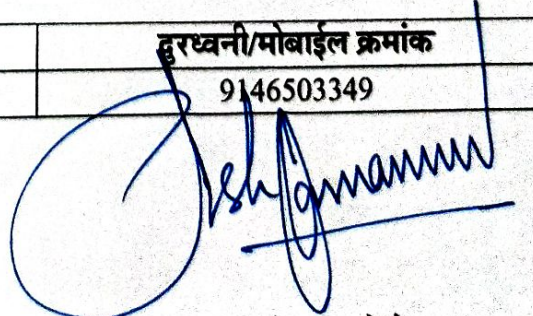 दुरध्वनी/मोबाईल क्रमांक
9146503349